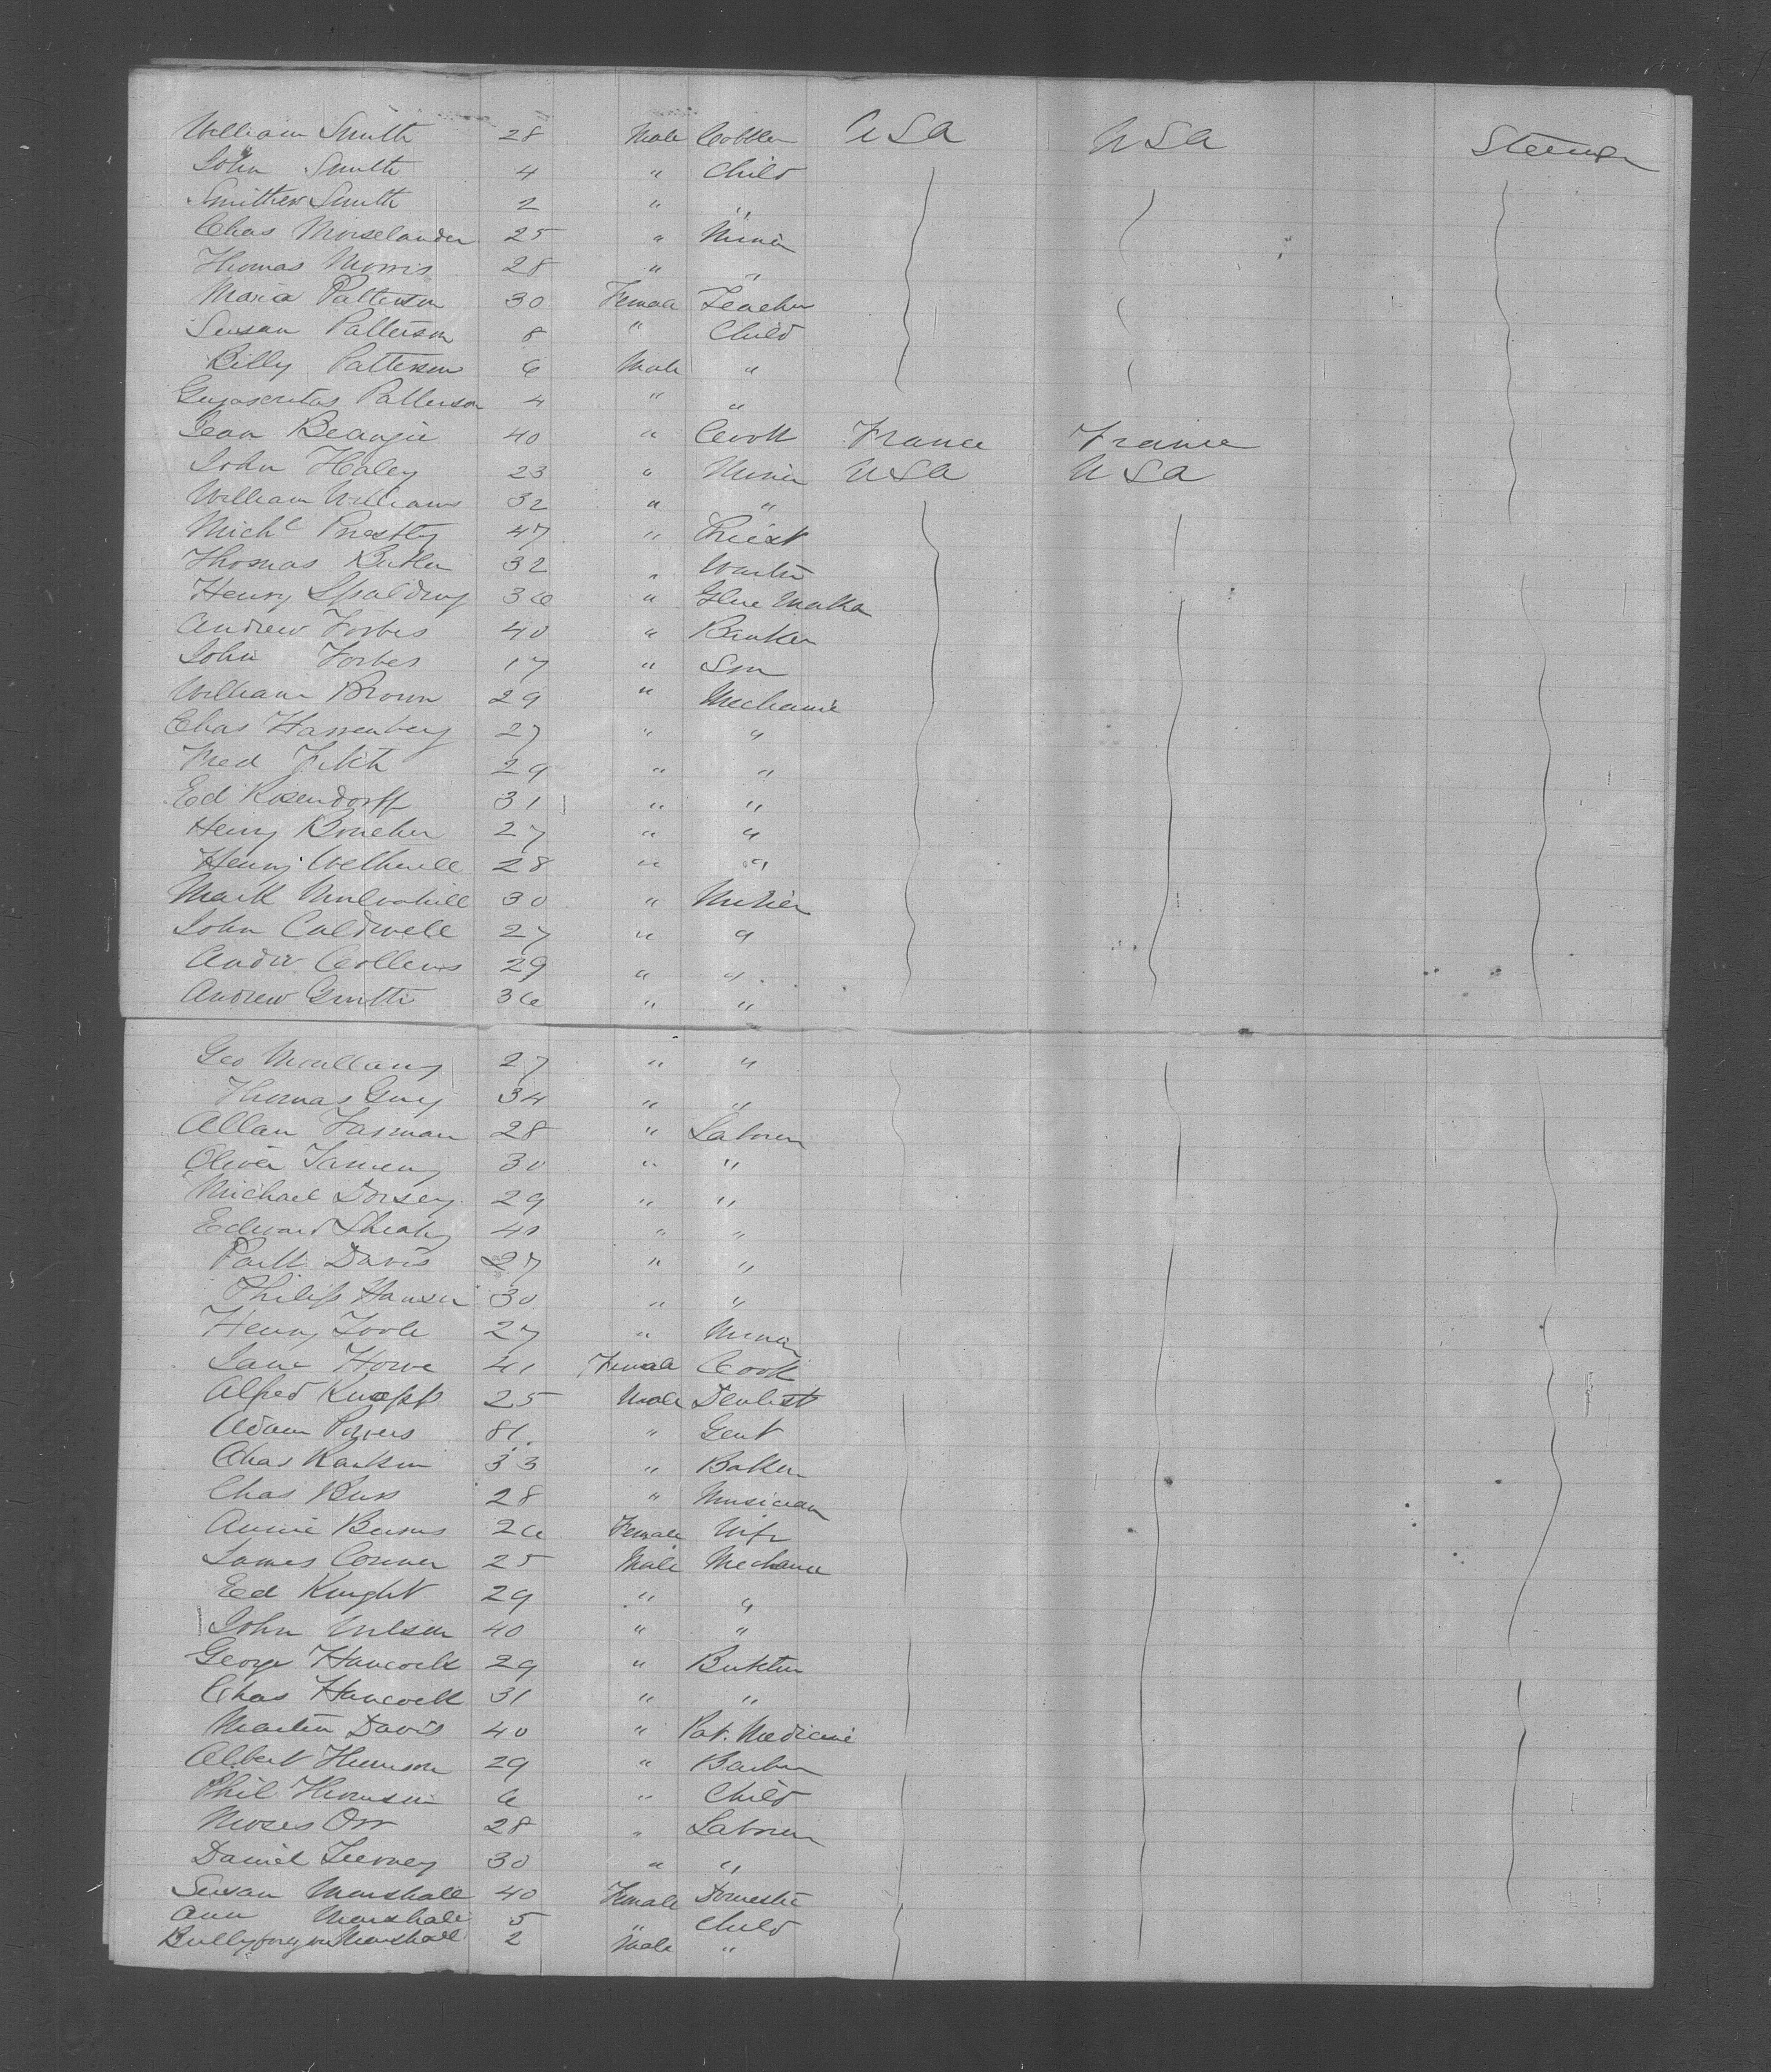 William Smith 28 Male Cobbler USA USA Steerage
John Smith 4 " Child
Smithers Smith 2 " "
Chas Morselander 25 " Miner
Thomas Morris 28 " "
Maria Patterson 30 Female Teacher
Susan Patterson 8 " Child
Billy Patterson 6 Male "
Patterson 4 " "
Jean 40 " Cook France France
John Haley 23 " Miner USA USA
William Williams 32 " "
Michl Priestly 47 " Priest
Thomas Butler 32 " Waiter
Henry Spalding 36 " Glue Maker
Andrew Forbes 40 " Banker
John Forbes 17 " Son
William Brown 29 " Mechanic
Chas 27 " "
Fred Fitch 29 " "
Ed Rosendorff 31 " "
Henry Boucher 27 " "
Henry Wetherell 28 " "
Mark Mulvahill 30 " Miner
John Caldwell 27 " "
Andw Collens 29 " "
Andrew Smith 36 " "
Geo Mcullany 27 " "
Thomas Guy 34 " "
Allan Fasman 28 " Laborer
Oliver 30 " "
Michael Dorsey 29 " "
Edward Sheahy 40 " "
Patk Davis 27 " "
Philip Hansen 30 " "
Henry Toole 27 " Miner
Jane Howe 41 Female Cook
Alfred Knapp 25 Male Dentist
Adam Powers 81 " Gent
Chas Rankin 33 " Baker
Chas Burs 28 " Musician
Annie Burns 26 Female Wife
James Conner 25 Male Mechanic
Ed Knight 29 " "
John Wilson 40 " "
George Hancock 29 " Butcher
Chas Hancock 31 " "
Martin Davis 40 " Pat. Medicine
Albert Thomson 29 " Barber
Phil Thomson 6 " Child
Moses Orr 28 " Laborer
Daniel Tierney 30 " "
Susan Marshall 40 Female Domestic
Ann Marshall 5 " Child
Marshall 2 Male "